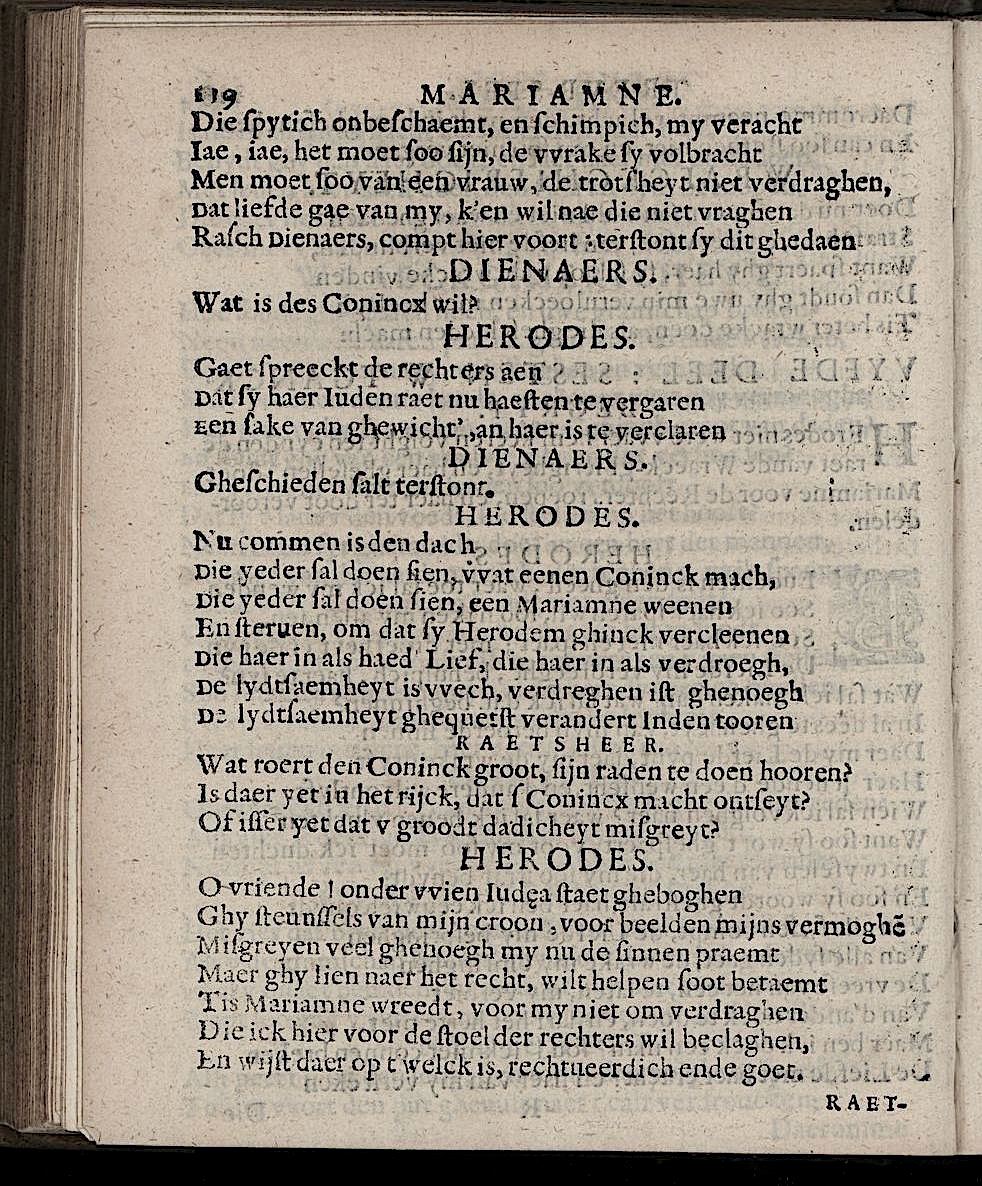 119 MARIAMNE.
Die ſpytich onbeſchaemt, en ſchimpich, my veracht
Iae, iae, het moet ſoo ſijn, de vvrake ſy volbracht
Men moet ſoo van een vrauw, de trotſheyt niet verdraghen,
Dat liefde gae van my, k'en wil nae die niet vraghen
Raſch Dienaers, compt hier voort : terſtont ſy dit ghedaen
DIENAERS.
Wat is des Conincx wil?
HERODES.
Gaet ſpreeckt de rechters aen
Dat ſy haer Iuden raet nu haeſten te vergaren
Een ſake van ghewicht', an haer is te verclaren
DIENAERS.
Gheſchieden ſalt terſtont.
HERODES.
Nu commen is den dach
Die yeder ſal doen ſien, vvat eenen Coninck mach,
Die yeder ſal doen ſien, een Mariamne weenen
En ſteruen, om dat ſy Herodem ghinck vercleenen
Die haer in als haed' Lief, die haer in als verdroegh,
De lydtſaemheyt is vvech, verdreghen iſt ghenoegh
De lydtſaemheyt ghequetſt verandert Inden tooren
RAETSHEER.
Wat roert den Coninck groot, ſijn raden te doen hooren?
Is daer yet in het rijck, dat ſ Conincx macht ontſeyt?
Of iſſer yet dat v groodt dadicheyt miſgreyt?
HERODES.
O vriende ! onder vvien Iudęa ſtaet gheboghen
Ghy ſteunſſels van mijn croon, voor beelden mijns vermoghē
Miſgreyen veel ghenoegh my nu de ſinnen praemt
Maer ghy lien naer het recht, wilt helpen ſoot betaemt
Tis Mariamne wreedt, voor my niet om verdraghen
Die ick hier voor de ſtoel der rechters wil beclaghen,
En wijſt daer op t'welck is, rechtueerdich ende goet.
RAET-